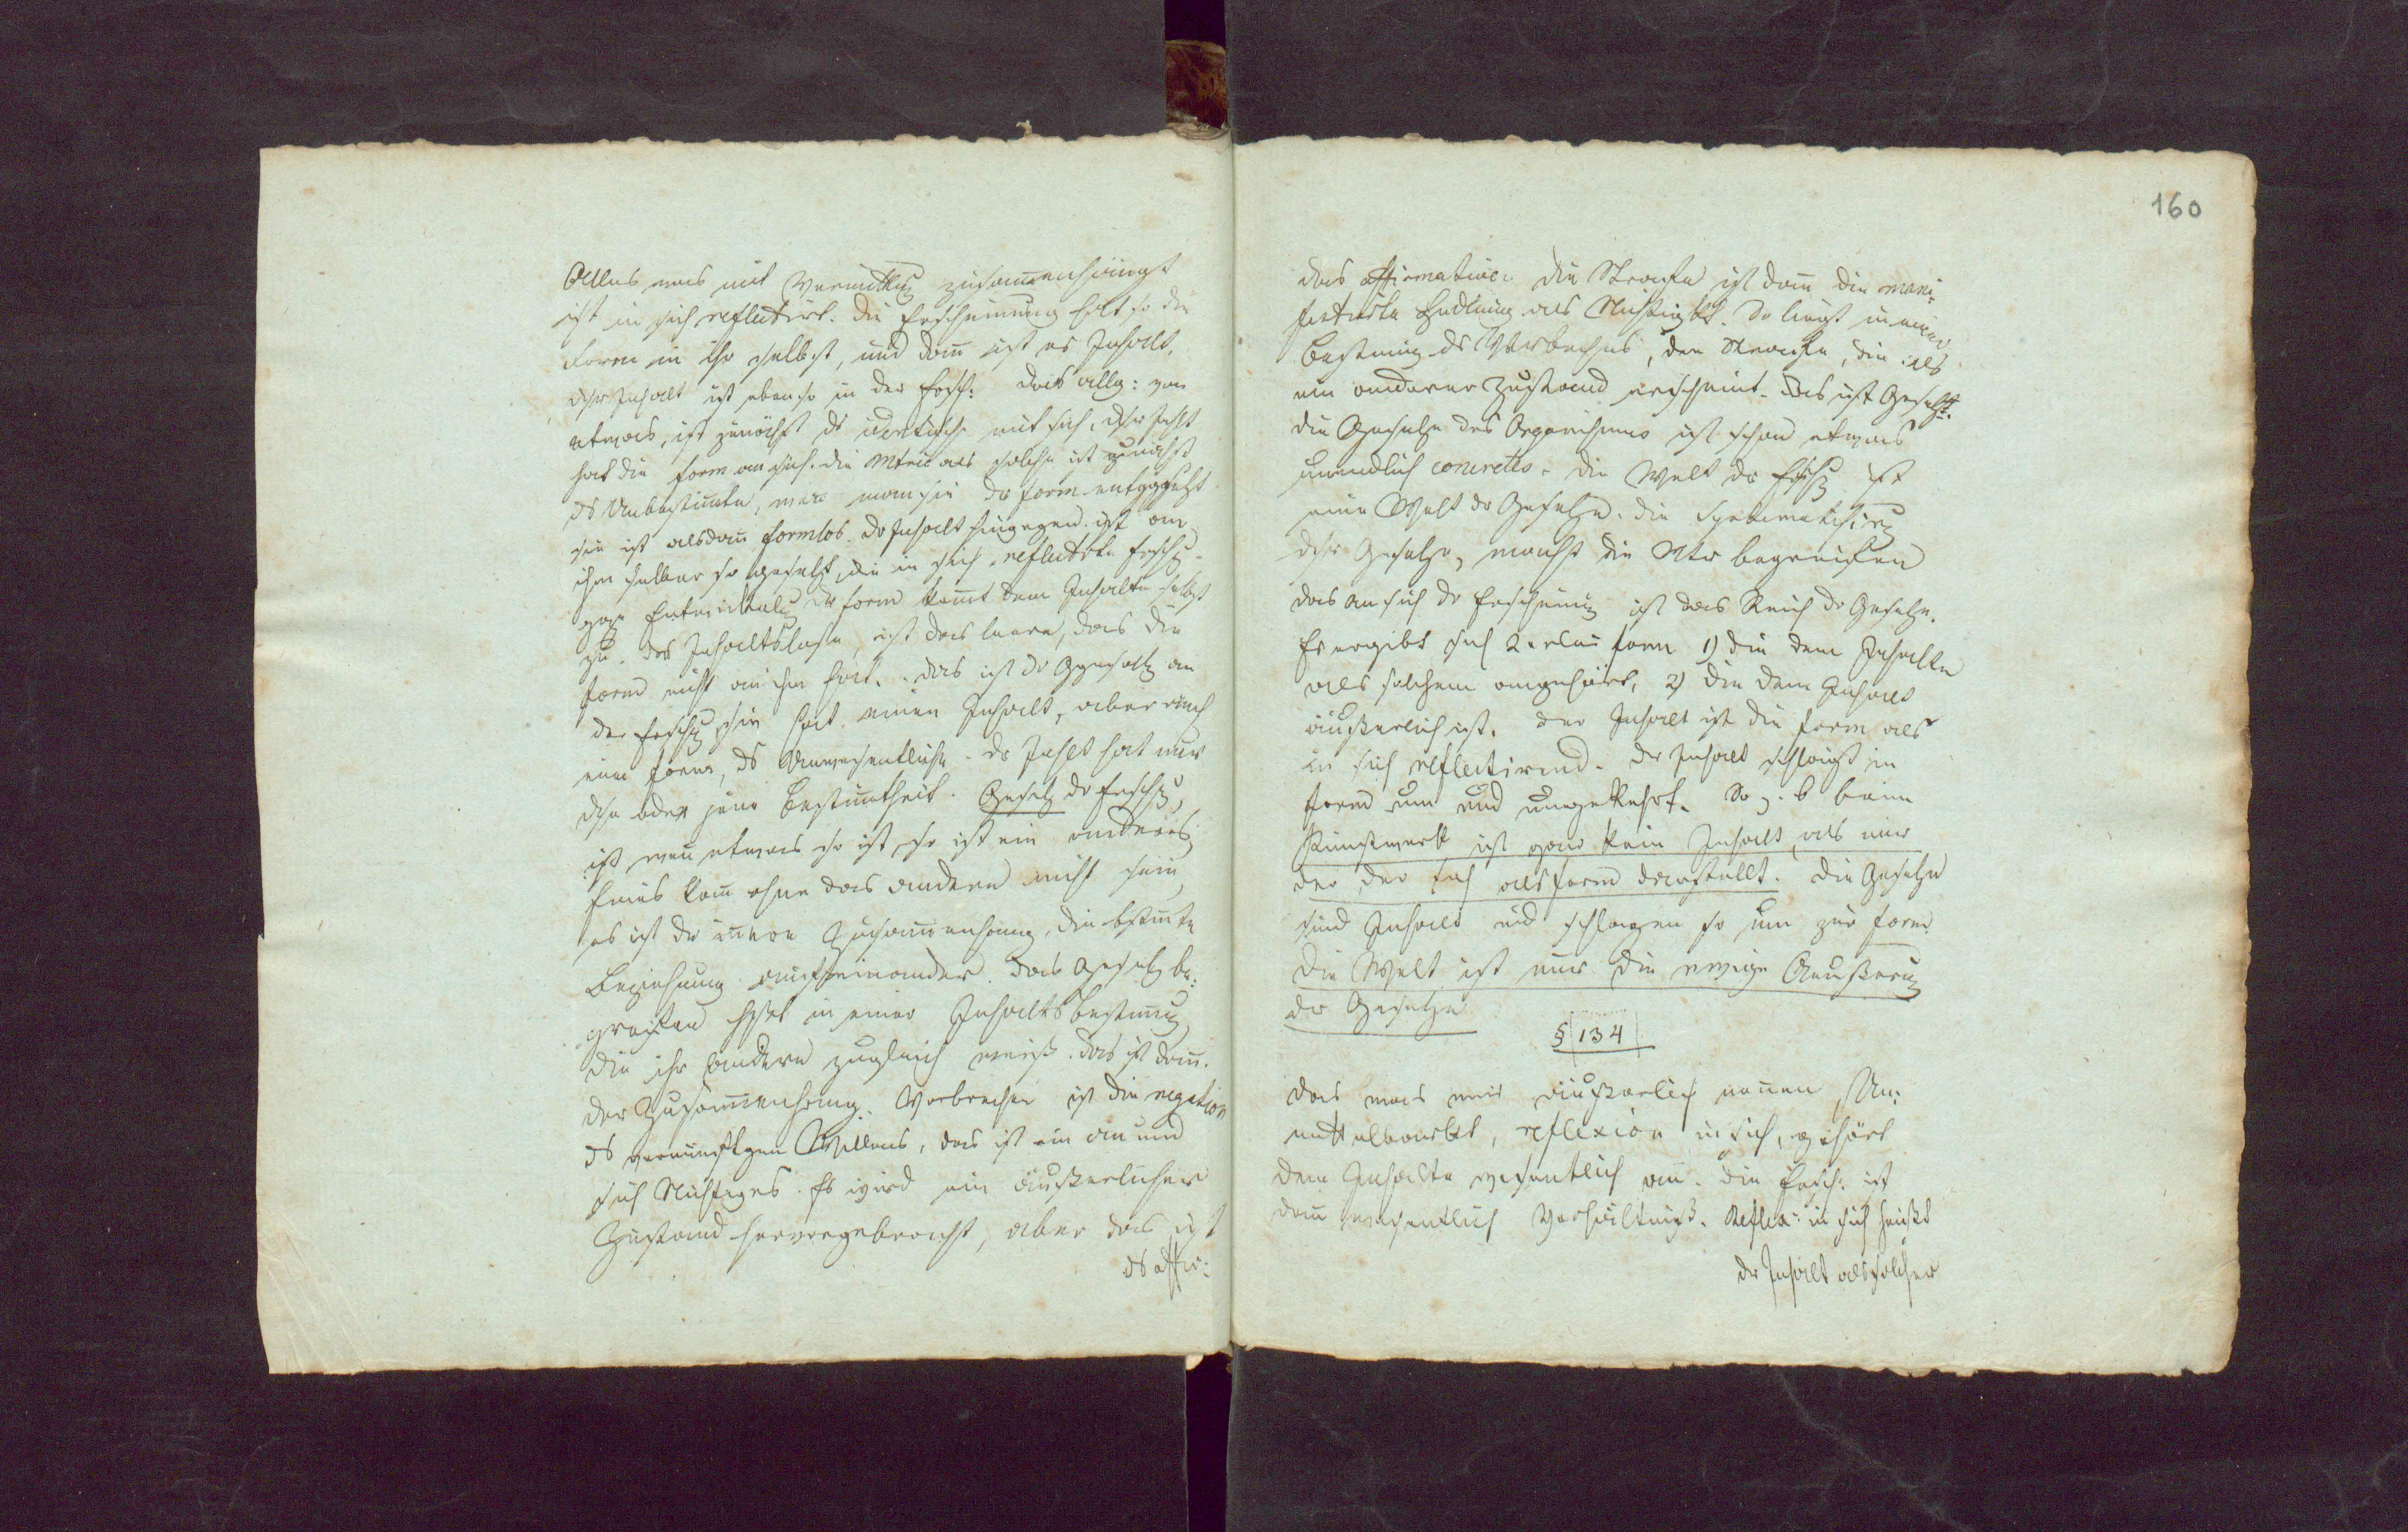 Alles was mit Vermittlg zusam̄enhängt
ist in sich reflectirt. Die Erscheinung hat so die
Form in ihr selbst, und dan̄ ist es Inhalt.
Dsr Inhalt ist ebenso in der Ersch: das allg: von
etwas, ist zunächst ds identische mit sich. Dsr Inhlt
hat die Form an sich. Die Mtrie als solche ist zunächst
ds Unbestim̄te, wen man sie dr Form entggsetzt
sie ist alsdan̄ formlos. Dr Inhalt hingegen ist an
ihm selber so gesetzt, die in sich reflectirte Erschg
Entwickelg dr Form kom̄t dem Inhalte selbst
zu. Das Inhaltslose, ist das leere, das die
Form nicht an ihm hat. Das ist dr Ggensatz an
der Erschg, sie hat einen Inhalt, aber auch
eine Form, ds Unwesentliche. Dr Inhlt hat nur
dse oder jene Bestim̄theit. Gesetz dr Erschg,
ist wen̄ etwas so ist, so ist ein anderes
Eines kan̄ ohne das andere nicht sein,
es ist der innere Zusam̄enhang, die bstim̄te
Beziehung aufeinander. Das Gesetz be:
greifen hßt in einer Inhaltsbestim̄g
die ihr andere zugleich weiß. Das ist dan̄
der Zusam̄enhang. Verbrechen ist die negation
ds vernünftgen Willens, das ist ein an und
sich Nichtiges. Es wird ein äußerlicher
Zustand hervorgebracht, aber das ist
ds affir:
160
das affirmative. Die Strafe ist dan̄ die mani:
festirte Hndlung als Nichtigkt. So liegt in einer
Bestim̄ng ds Verbrechens, der Strafe, die als
ein anderer Zustand erscheint. Das ist Gesetz.
Die Gesetze des Organismus ist schon etwas
unendlich concretes. Die Welt dr Erschg ist
eine Welt dr Gesetze. Die Systematisirg
dsr Gesetze, macht die Ntr begreifen
das an sich dr Erscheing ist das Reich dr Gesetze.
Es ergibt sich 2erlei Form 1) die dem Inhalte
als solchem angehört, 2) die dem Inhalt
äußerlich ist. Der Inhalt ist die Form als
in sich reflectirend. Dr Inhalt schlägt in
Form um und umgekehrt. So z. b beim
Kunstwerk ist gar kein Inhalt, als nur
der, der sich als Form darstellt. Die Gesetze
sind Inhalt und schlagen so um zur Form.
Die Welt ist nur die ewige Aeußerug
dr Gesetze
§ 134
Das was wir äußerlich nen̄en, Un:
mittelbarkt, reflexion in sich, gehört
dem Inhalte wesentlich an. Die Ersch: ist
dan̄ wesentlich Verhältniß. Reflex: in sich heißt
dr Inhalt als solcher